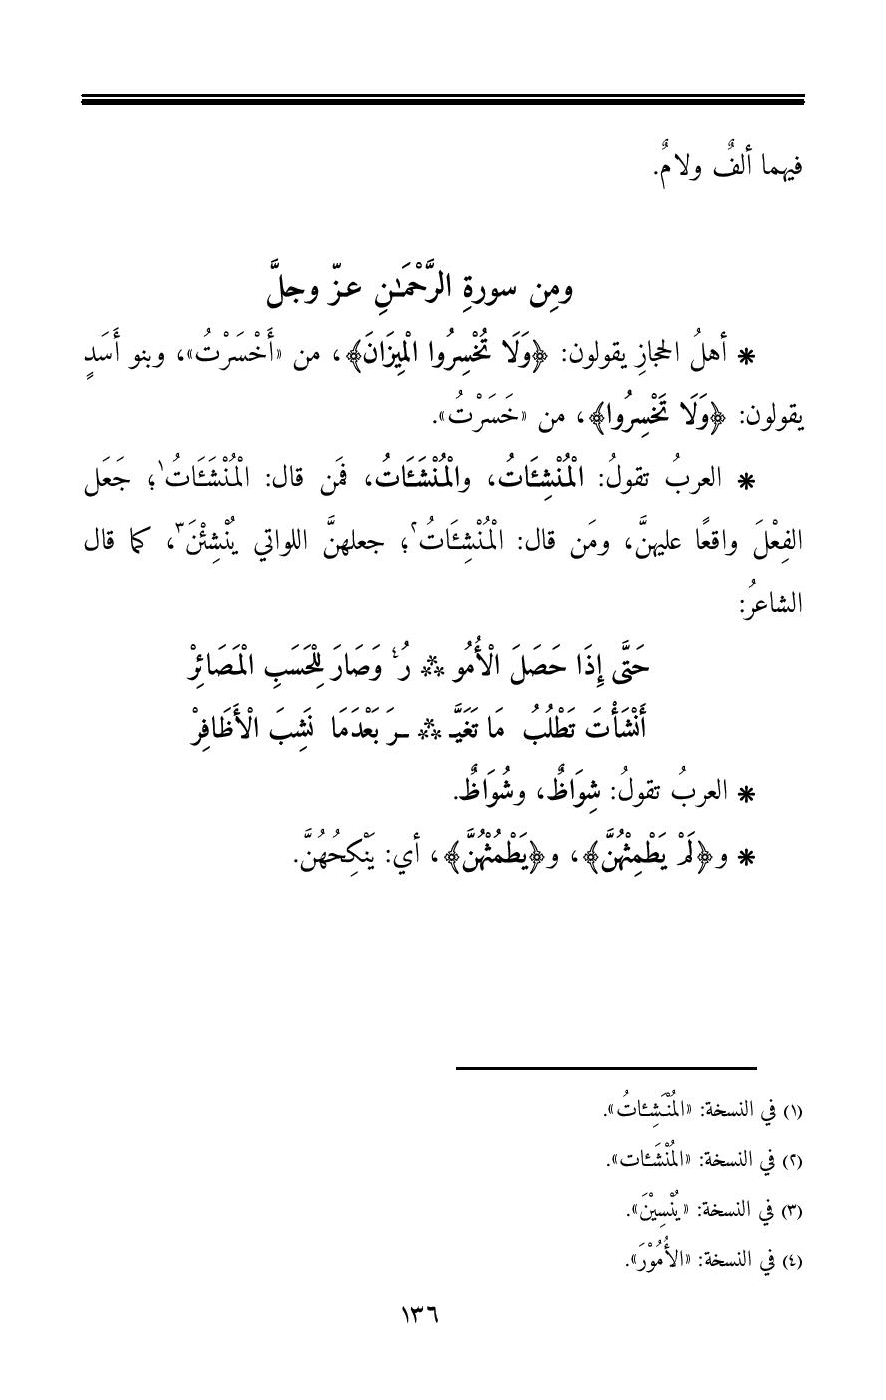 فيهما ألفٌ ولامٌ.
ومِن سورةِ الرَّحْمَـٰنِ عزّ وجلَّ
* أهلُ الحجازِ يقولون: ﴿وَلَا تُخْسِرُوا الْمِيزَانَ﴾، من «أَخْسَرْتُ»، وبنو أَسَدٍ
يقولون: ﴿وَلَا تَخْسِرُوا﴾، من «خَسَرْتُ».
* العربُ تقولُ: الْمُنْشِئَاتُ، والْمُنْشَئَاتُ، فمَن قال: الْمُنْشَئَاتُ١؛ جَعَل
الفِعْلَ واقعًا عليهنَّ، ومَن قال: الْمُنْشِئَاتُ٢؛ جعلهنَّ اللواتي يُنْشِئْنَ٣، كما قال
الشاعرُ:
حَتَّى إِذَا حَصَلَ الْأُمُو ** رُ٤ وَصَارَ لِلْحَسَبِ الْمَصَائِرْ
أَنْشَأْتَ تَطْلُبُ مَا تَغَيَّـ ** ـرَ بَعْدَمَا نَشِبَ الْأَظَافِرْ
* العربُ تقولُ: شِوَاظٌ، وشُوَاظٌ.
* و﴿لَمْ يَطْمِثْهُنَّ﴾، و﴿يَطْمُثْهُنَّ﴾، أي: يَنْكِحُهُنَّ.
(١) في النسخة: «المُنْشَِئاتُ».
(٢) في النسخة: «المُنْشَئات».
(٣) في النسخة: «يُنْسِيْنَ».
(٤) في النسخة: «الأُمُوْرَ».
١٣٦